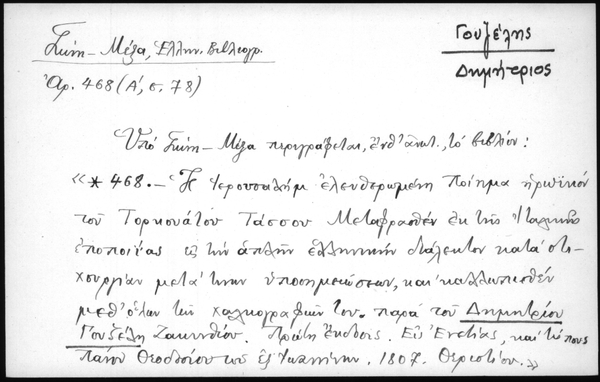 Γκίνη - Μέξα, Ἑλλην. Βιβλιογρ.
Γουζέλης
Δημήτριος
Ἀρ. 468 (Α', σ. 78)
Ὑπό Γκίνη - Μέξα περιγράφεται, ἔνθ' ἀνωτ., τό βιβλίον:
«* 468. - Ἡ Ἱερουσαλήμ ἐλευθερωμένη ποίημα ἡρωϊκόν
τοῦ Τορκουάτου Τάσσου Μεταφρασθέν ἐκ τῆς Ἰταλικῆς
ἐποποιΐας εἰς τήν ἁπλῆν ἑλληνικήν διάλεκτον κατά στι-
χουργίαν μετά τινων ὑποσημειώσεων, καί καλλωπισθέν
μεθ' ὅλων τῶν χαλκογραφιῶν του. παρά τοῦ Δημητρίου
Γουζέλη Ζακυνθίου. Πρώτη ἔκδοσις. Ἐν Ἐνετίας, καί τύποις
Πάνου Θεοδοσίου τοῦ ἐξ Ἰωαννίνων. 1807. Θεριστίου.»